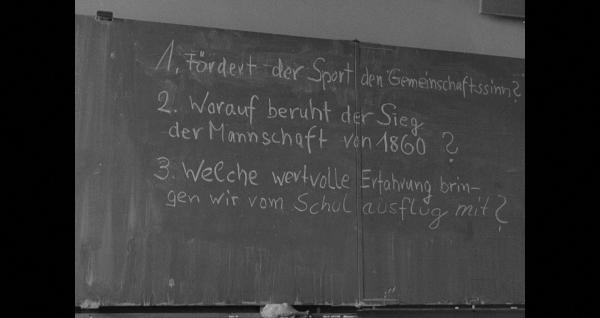 1. Fördert der Sport den Gemeinschaftssinn?
2. Worauf beruht der Sieg
der Mannschaft von 1860?
3. Welche wertvolle Erfahrung brin-
gen wir vom Schulausflug mit?